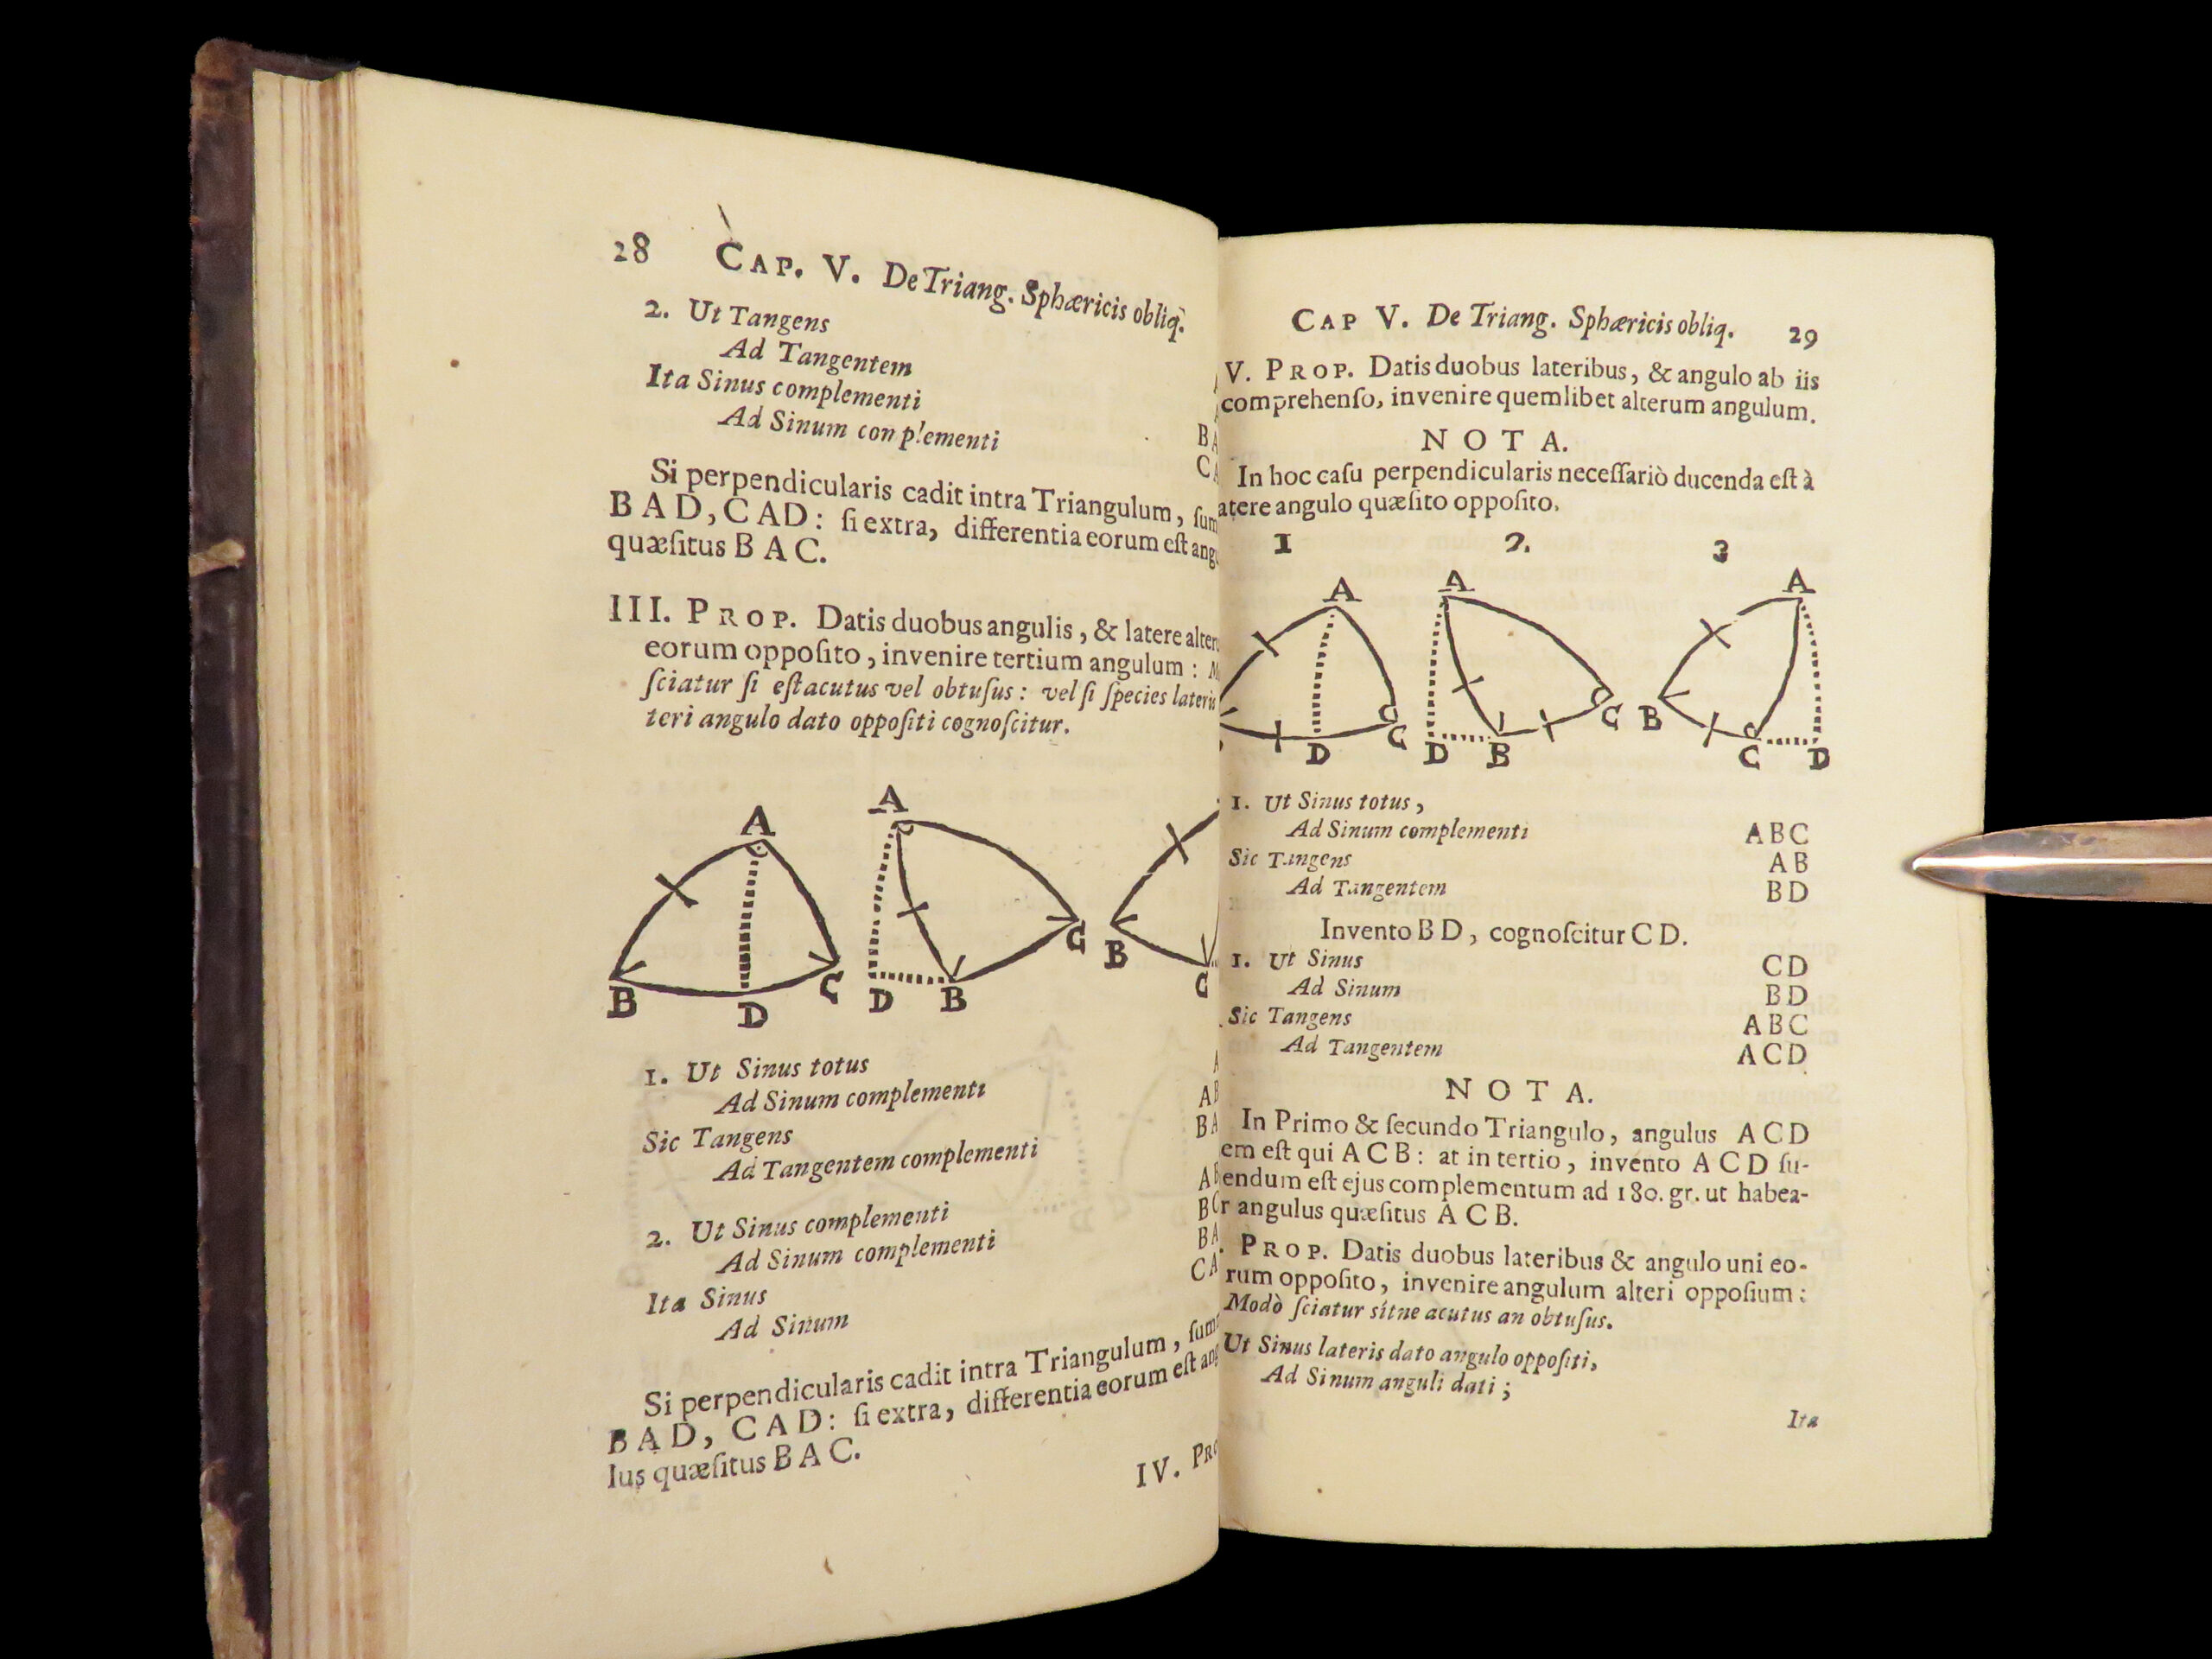 28 CAP. V. De Triang. Sphæricis obliq.
2. Ut Tangens
Ad Tangentem
Ita Sinus complementi
Ad Sinum complementi
BA
CA
Si perpendicularis cadit intra Triangulum, ſum
BAD, CAD: ſi extra, differentia eorum eſt ang
quæſitus BAC.
III. PROP. Datis duobus angulis, & latere alter
eorum oppoſito, invenire tertium angulum: M
ſciatur ſi eſt acutus vel obtuſus: vel ſi ſpecies lateris
teri angulo dato oppoſiti cognoſcitur.
A A
B D C D B C B C
1. Ut Sinus totus
Ad Sinum complementi
AB
Sic Tangens
BA
Ad Tangentem complementi
2. Ut Sinus complementi
AB
Ad Sinum complementi
BC
Ita Sinus
BA
Ad Sinum
CA
Si perpendicularis cadit intra Triangulum, ſum
BAD, CAD: ſi extra, differentia eorum eſt ang
lus quæſitus BAC.
IV. PRO
CAP V. De Triang. Sphæricis obliq. 29
V. PROP. Datis duobus lateribus, & angulo ab iis
comprehenſo, invenire quemlibet alterum angulum.
NOTA.
In hoc caſu perpendicularis neceſſariò ducenda eſt à
atere angulo quæſito oppoſito.
1 2. 3
A A A
D C D B C B C D
1. Ut Sinus totus,
Ad Sinum complementi ABC
Sic Tangens AB
Ad Tangentem BD
Invento BD, cognoſcitur CD.
1. Ut Sinus CD
Ad Sinum BD
Sic Tangens ABC
Ad Tangentem ACD
NOTA.
In Primo & ſecundo Triangulo, angulus ACD
em eſt qui ACB: at in tertio, invento ACD ſu-
endum eſt ejus complementum ad 180. gr. ut habea-
r angulus quæſitus ACB.
. PROP. Datis duobus lateribus & angulo uni eo-
rum oppoſito, invenire angulum alteri oppoſium:
Modò ſciatur sitne acutus an obtuſus.
Ut Sinus lateris dato angulo oppoſiti,
Ad Sinum anguli dati;
Ita